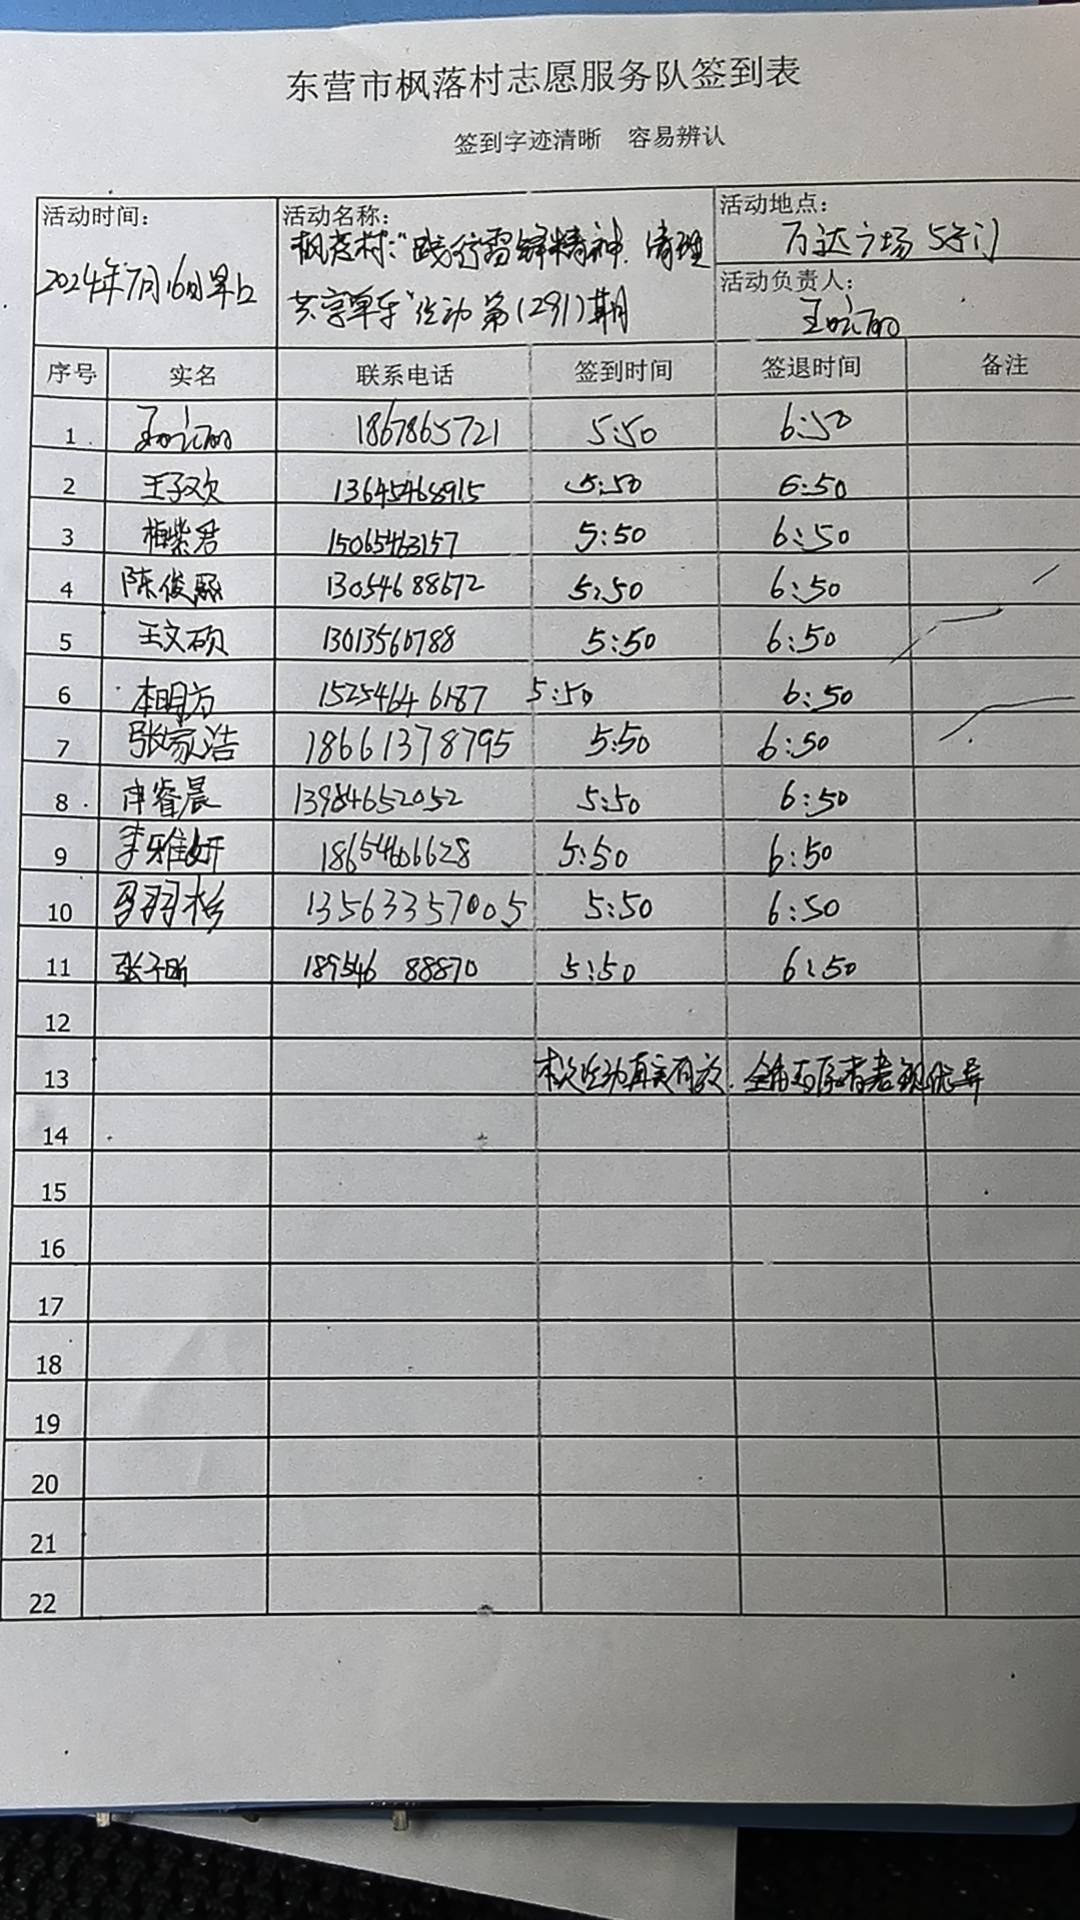 东营市枫落村志愿服务队签到表
签到字迹清晰 容易辨认
活动时间: 2024年7月16日早上
活动名称: 枫落村:“践行雷锋精神、清理
共享单车”活动第(291)期
活动地点: 万达广场5号门
活动负责人:
序号 实名 联系电话 签到时间 签退时间 备注
1 1867865721 5:50 6:50
2 王子欢 13645468915 5:50 6:50
3 梅紫君 15065463157 5:50 6:50
4 陈俊熙 13054688572 5:50 6:50
5 王文硕 13013560788 5:50 6:50
6 15254646187 5:50 6:50
7 张家浩 18661378795 5:50 6:50
8 睿晨 13984652052 5:50 6:50
9 李雅妍 18654606628 5:50 6:50
10 羽杉 13563357005 5:50 6:50
11 张子昕 18954688870 5:50 6:50
12
13 本次活动真实有效、全体志愿者表现优异
14
15
16
17
18
19
20
21
22